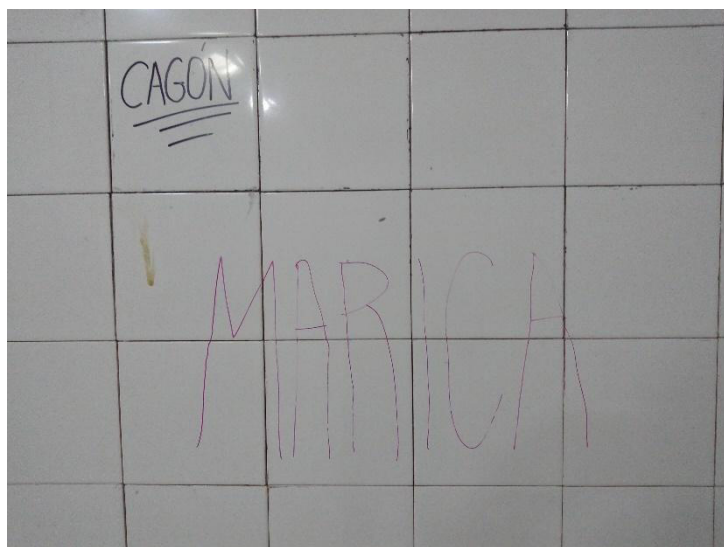 CAGÓN
MARICA